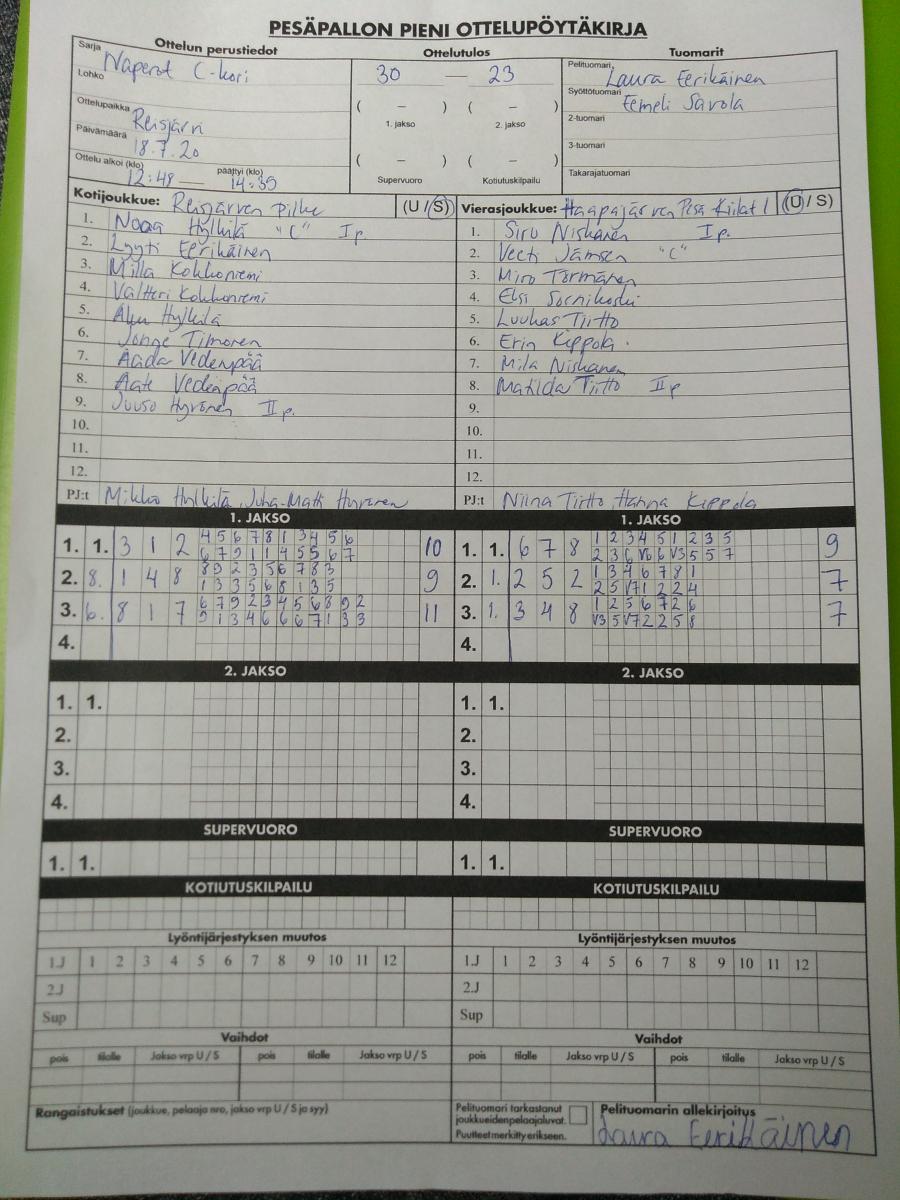 PESÄPALLON PIENI OTTELUPÖYTÄKIRJA
Ottelun perustiedot Ottelutulos Tuomarit
Sarja Naperot C-kori
30 — 23
Pelituomari Laura Eerikäinen
Lohko
Syöttötuomari Eemeli Savola
Ottelupaikka Reisjärvi
( – ) ( – )
1. jakso 2. jakso
2-tuomari
Päivämäärä 18.7.20
3-tuomari
Ottelu alkoi (klo) päättyi (klo)
12:48 — 14:35
( – ) ( – )
Supervuoro Kotiutuskilpailu
Takarajatuomari
Kotijoukkue: Reisjärven Pilke (U / S) Vierasjoukkue: Haapajärven Pesä Kiilat 1 (U / S)
1. Nooa Hylkilä "C" I p. 1. Siru Niskanen I p.
2. Lyyti Eerikäinen 2. Veeti Jämsen "C"
3. Milla Kokkoniemi 3. Miro Törmänen
4. Valtteri Kokkoniemi 4. Elsi
5. Aku Hylkilä 5. Luukas Tiitto
6. Timonen 6. Erin Kippola
7. Aada Vedenpää 7. Mila Niskanen
8. Aate Vedenpää 8. Matilda Tiitto II p
9. Juuso Hyvönen II p. 9.
10. 10.
11. 11.
12. 12.
PJ:t Mikko Hylkilä, Juha-Matti Hyvönen PJ:t Niina Tiitto, Hanna Kippola
1. JAKSO 1. JAKSO
1. 1. 3 1 2 4 5 6 7 8 1 3 4 5 6 10 1. 1. 6 7 8 1 2 3 4 5 1 2 3 5 9
6 7 9 1 1 4 5 5 6 7 2 3 6 V6 6 V3 5 5 7
2. 8. 1 4 8 8 9 2 3 5 6 7 8 3 9 2. 1. 2 5 2 1 3 4 6 7 8 1 7
1 3 3 5 6 8 1 3 5 2 5 V7 1 2 2 4
3. 6. 8 1 7 6 7 9 2 3 4 5 6 8 9 2 11 3. 1. 3 4 8 1 2 5 6 7 2 6 7
9 1 3 4 6 6 6 7 1 3 3 V3 5 V7 2 2 5 8
4. 4.
2. JAKSO 2. JAKSO
1. 1. 1. 1.
2. 2.
3. 3.
4. 4.
SUPERVUORO SUPERVUORO
1. 1. 1. 1.
KOTIUTUSKILPAILU KOTIUTUSKILPAILU
Lyöntijärjestyksen muutos Lyöntijärjestyksen muutos
1.J 1 2 3 4 5 6 7 8 9 10 11 12 1.J 1 2 3 4 5 6 7 8 9 10 11 12
2.J 2.J
Sup Sup
Vaihdot Vaihdot
pois tilalle Jakso vrp U / S pois tilalle Jakso vrp U / S pois tilalle Jakso vrp U / S pois tilalle Jakso vrp U / S
Rangaistukset (joukkue, pelaaja nro, jakso vrp U / S ja syy)
Pelituomari tarkastanut joukkueidenpelaajaluvat.
Puutteet merkitty erikseen.
Pelituomarin allekirjoitus
Laura Eerikäinen